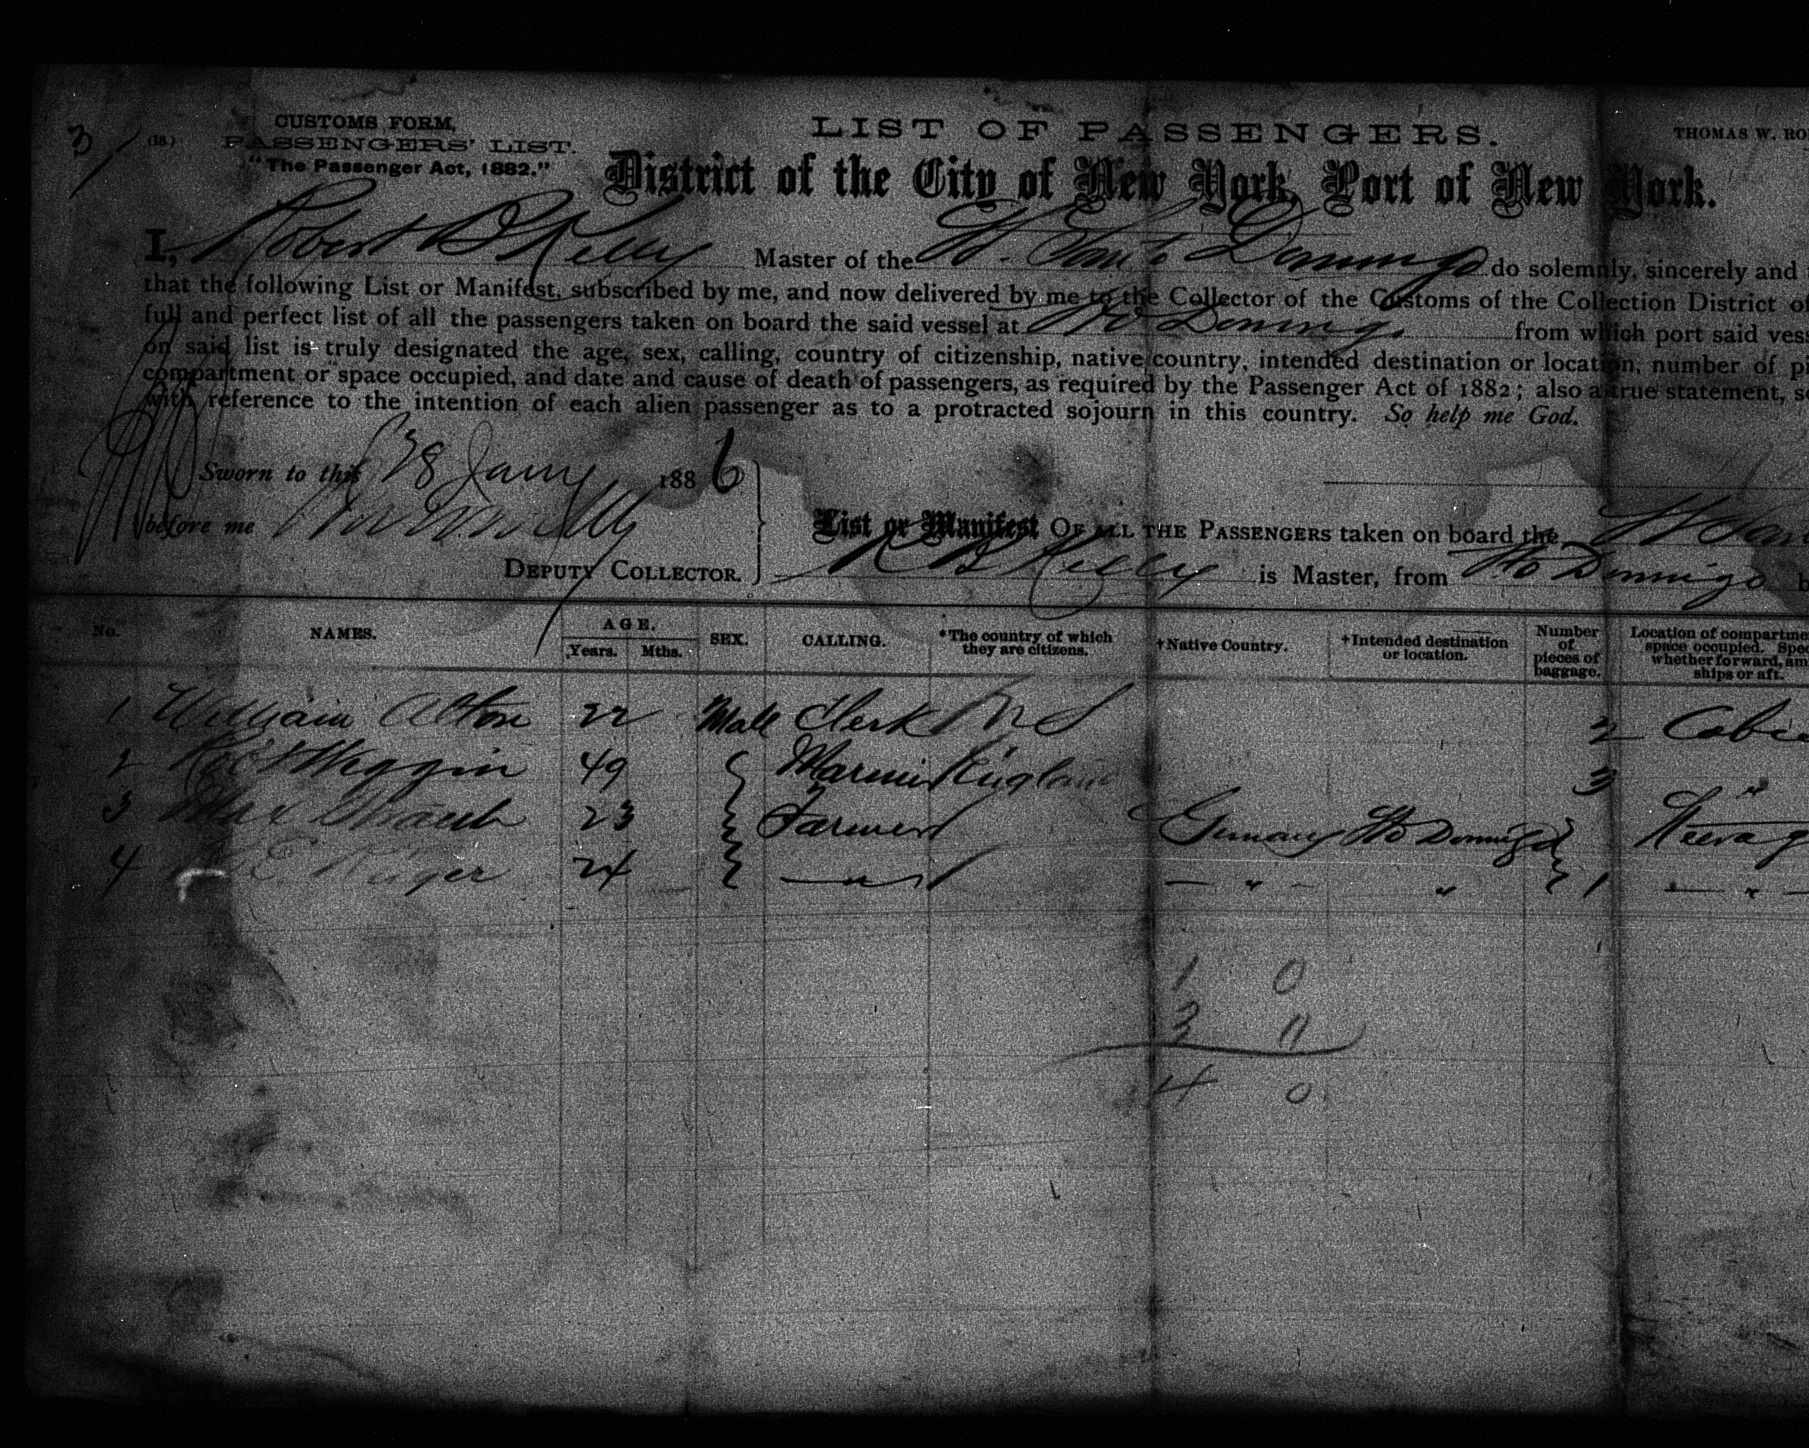 3/
(18.)
CUSTOMS FORM,
PASSENGERS' LIST.
"The Passenger Act, 1882."
LIST OF PASSENGERS.
THOMAS W. RO
District of the City of New York, Port of New York.
I, Robert B Kelly Master of the St. Santo Domingo do solemnly, sincerely and
that the following List or Manifest, subscribed by me, and now delivered by me to the Collector of the Customs of the Collection District of
full and perfect list of all the passengers taken on board the said vessel at Sto Domingo from which port said vess
on said list is truly designated the age, sex, calling, country of citizenship, native country, intended destination or location, number of pi
compartment or space occupied, and date and cause of death of passengers, as required by the Passenger Act of 1882; also a true statement, so
with reference to the intention of each alien passenger as to a protracted sojourn in this country. So help me God.
Sworn to this 28 Jany 1886
before me
DEPUTY COLLECTOR.
List or Manifest OF ALL THE PASSENGERS taken on board the
R B Kelly is Master, from Sto Domingo b
No. NAMES. AGE. Years. Mths. SEX. CALLING. *The country of which they are citizens. †Native Country. †Intended destination or location. Number of pieces of baggage. Location of compartme space occupied. Spec whether forward, am ships or aft.
1 William Alton 22 Male Clerk U S 2 Cabi
2 Wiggin 49 Marine England 3 "
3 Max 23 Farmer Germany Sto Domingo Steerag
4 E. 24 — " — " — " 1 — " —
1 0
3 0
4 0